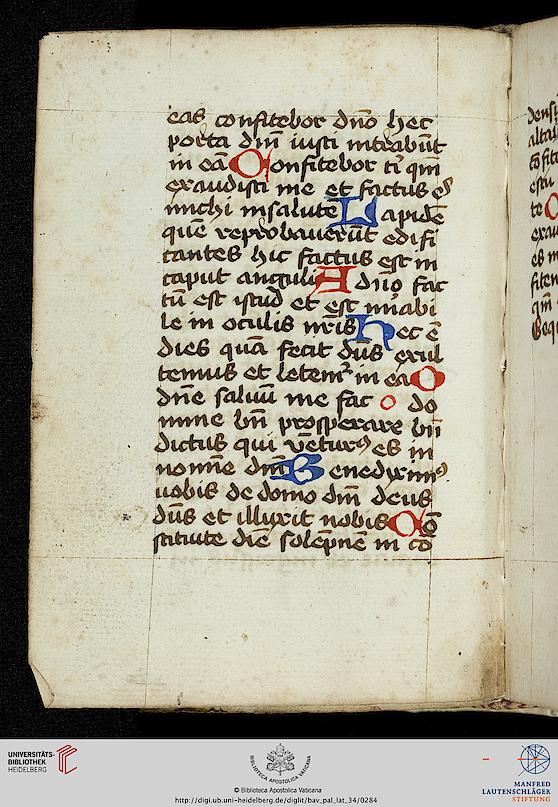 eas confitebor dño hec
porta dñi iusti intrabūt
in eā Confitebor ti qm̄
exaudisti me et factus es
michi insalute Lapidē
quē reprobauerūt edifi
cantes hic factus est in
caput anguli A dño fac
tū est istud et est mirabi
le in oculis nr̄is Hec ē
dies quā fecit dūs exul
temus et letem̄ in ea O
dñe saluū me fac o do
mine bn̄ prosperare bn̄
dictus qui vēturꝰ es in
nomine dñi Benediximꝰ
uobis de domo dñi deus
dūs et illuxit nobis Cō
stitute diē solepnē in cō
UNIVERSITÄTS-
BIBLIOTHEK
HEIDELBERG
BIBLIOTECA APOSTOLICA VATICANA
© Biblioteca Apostolica Vaticana
http://digi.ub.uni-heidelberg.de/diglit/bav_pal_lat_34/0284
MANFRED
LAUTENSCHLÄGER
STIFTUNG